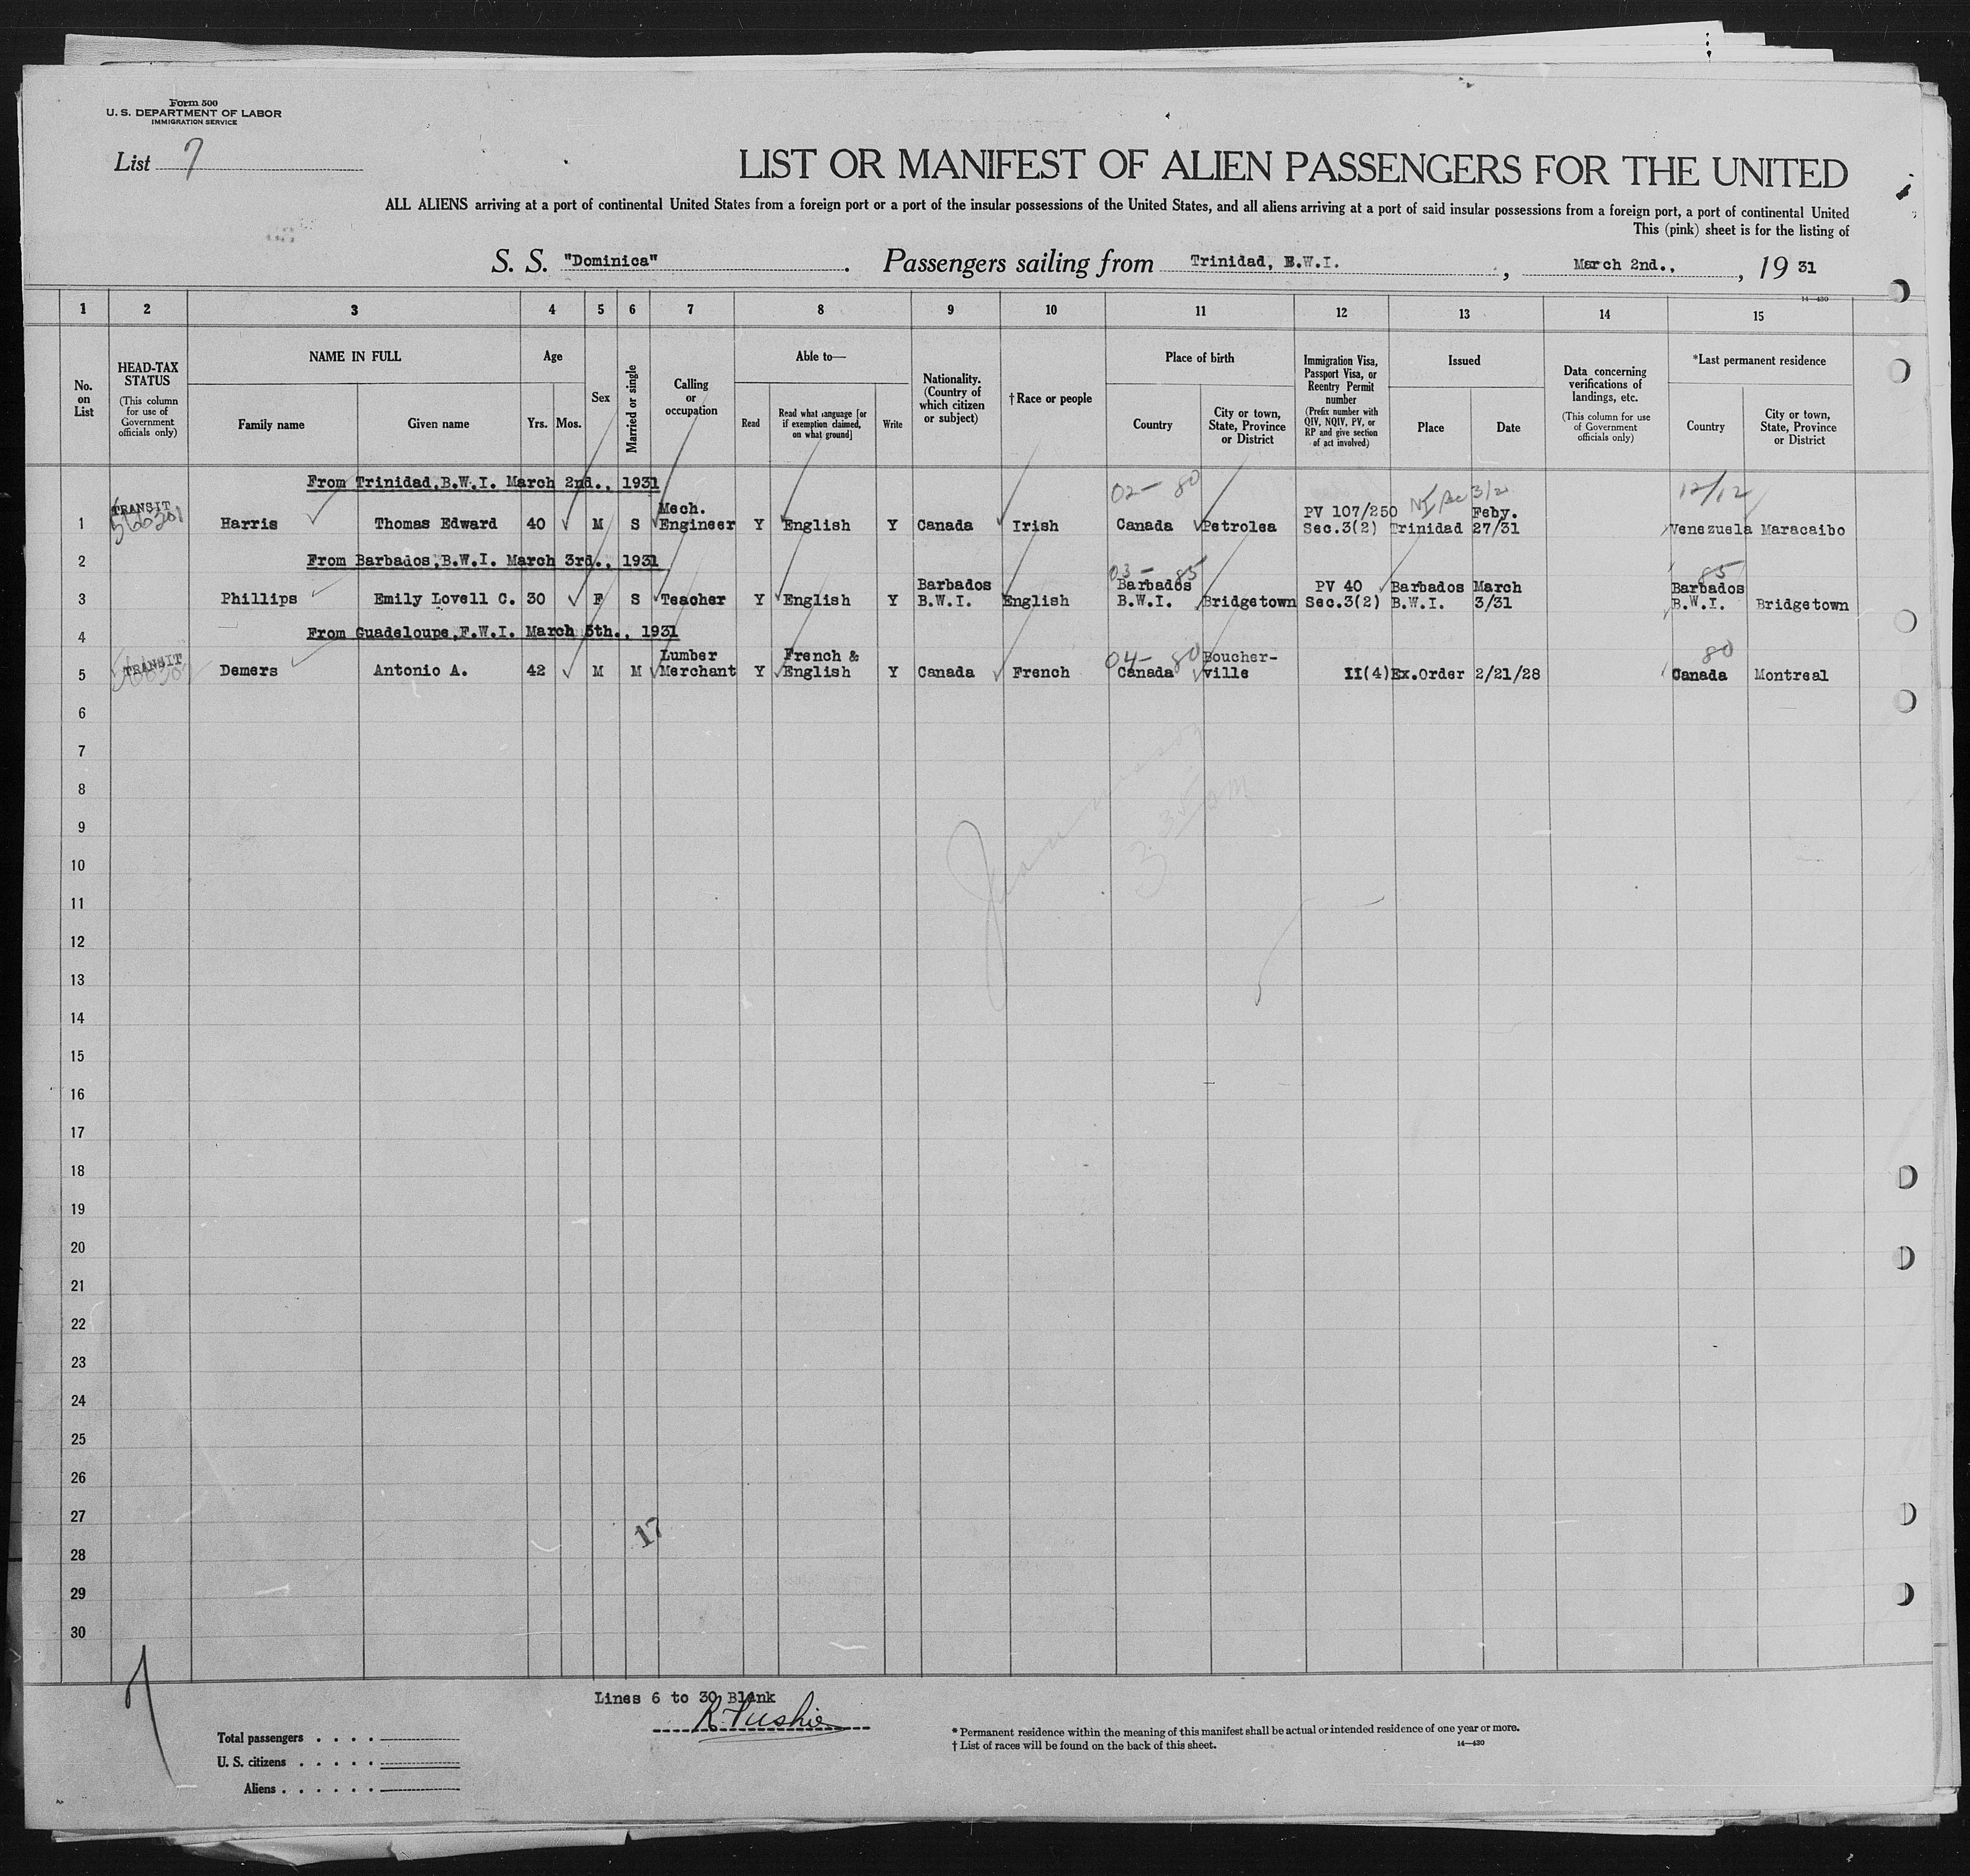 Form 500
U. S. DEPARTMENT OF LABOR
IMMIGRATION SERVICE
List 7
LIST OR MANIFEST OF ALIEN PASSENGERS FOR THE UNITED
ALL ALIENS arriving at a port of continental United States from a foreign port or a port of the insular possessions of the United States, and all aliens arriving at a port of said insular possessions from a foreign port, a port of continental United
This (pink) sheet is for the listing of
S. S. "Dominica" . Passengers sailing from Trinidad, B.W.I. , March 2nd., , 19 31
14—430
1 2 3 4 5 6 7 8 9 10 11 12 13 14 15
No. on List
HEAD-TAX STATUS
(This column for use of Government officials only)
NAME IN FULL
Family name Given name
Age
Yrs. Mos.
Sex
Married or single
Calling or occupation
Able to—
Read
Read what language [or if exemption claimed, on what ground]
Write
Nationality. (Country of which citizen or subject)
† Race or people
Place of birth
Country
City or town, State, Province or District
Immigration Visa, Passport Visa, or Reentry Permit number
(Prefix number with QIV, NQIV, PV, or RP and give section of act involved)
Issued
Place Date
Data concerning verifications of landings, etc.
(This column for use of Government officials only)
*Last permanent residence
Country
City or town, State, Province or District
From Trinidad,B.W.I. March 2nd., 1931
02— 80 3/2 12/12
1 TRANSIT Harris Thomas Edward 40 M S Mech. Engineer Y English Y Canada Irish Canada Petrolea PV 107/250 Sec.3(2) Trinidad Feby. 27/31 Venezuela Maracaibo
2 From Barbados,B.W.I. March 3rd., 1931
03— 85 85
3 Phillips Emily Lovell C. 30 F S Teacher Y English Y Barbados B.W.I. English Barbados B.W.I. Bridgetown PV 40 Sec.3(2) Barbados B.W.I. March 3/31 Barbados B.W.I. Bridgetown
4 From Guadeloupe,F.W.I. March 5th., 1931
04— 80 80
5 TRANSIT Demers Antonio A. 42 M M Lumber Merchant Y French & English Y Canada French Canada Boucher-ville II(4) Ex.Order 2/21/28 Canada Montreal
6
7
8
9
10
11
12
13
14
15
16
17
18
19
20
21
22
23
24
25
26
27
17
28
29
30
Lines 6 to 30 Blank
Total passengers . . . .
U. S. citizens . . . . .
Aliens . . . . . .
* Permanent residence within the meaning of this manifest shall be actual or intended residence of one year or more.
† List of races will be found on the back of this sheet.
14—430